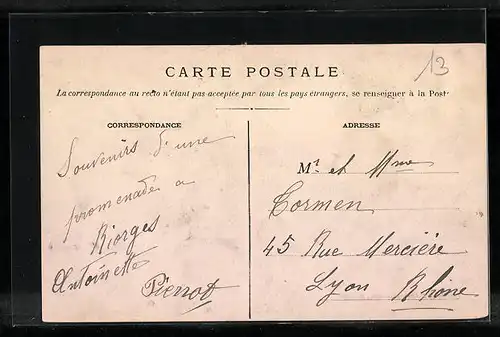 13
CARTE POSTALE
La correspondance au recto n'étant pas acceptée par tous les pays étrangers, se renseigner à la Poste
CORRESPONDANCE
Souvenirs d'une
promenade a
Riorges
Antoinette
Pierrot
ADRESSE
Mr et Mme
Cormen
45 Rue Mercière
Lyon Rhône